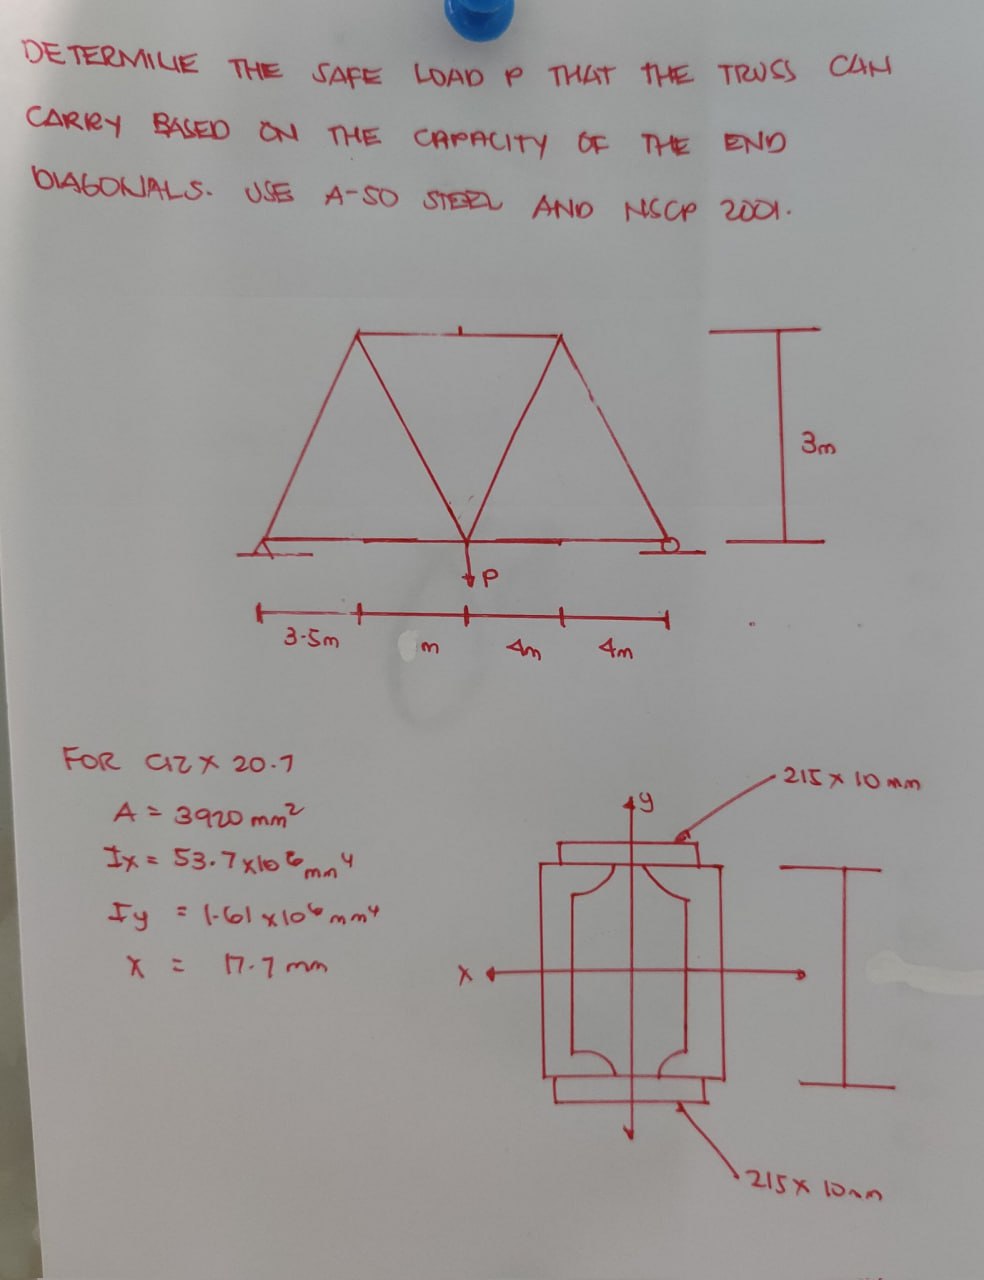 DETERMINE THE SAFE LOAD P THAT THE TRUSS CAN
CARRY BASED ON THE CAPACITY OF THE END
DIAGONALS. USE A-50 STEEL AND NSCP 2001.
3m
P
3.5m
m
4m
4m
FOR C12 X 20.7
A = 3920 mm²
Ix = 53.7 x10⁶ mm⁴
Iy = 1.61 x10⁶ mm⁴
X = 17.7 mm
215 x 10 mm
y
x
215 x 10mm